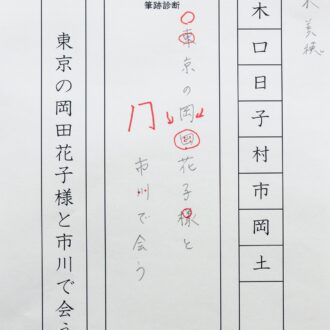 木 美穂
木口日子村市岡土
筆跡診断
東京の岡田花子様と
市川で会う
東京の岡田花子様と市川で会う